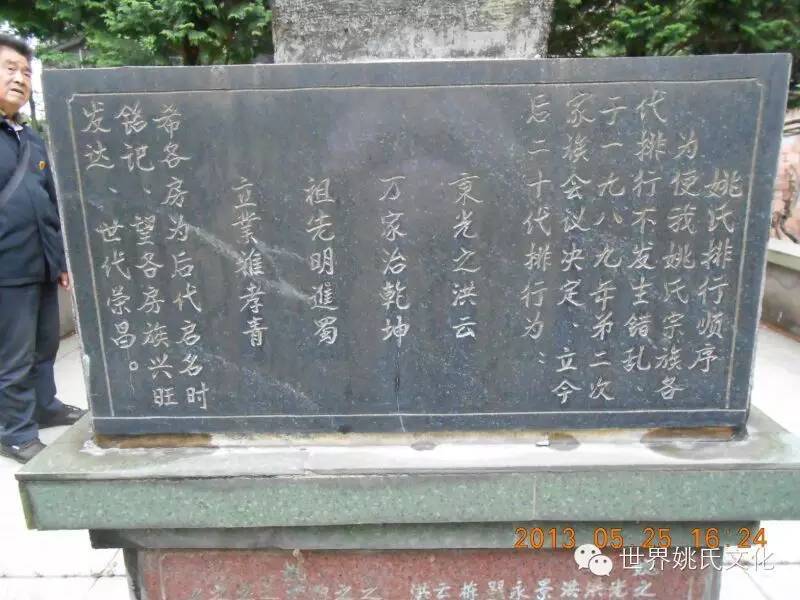 姚氏排行顺序
为使我姚氏宗族各
代排行不发生错乱、
于一九八九年第二次
家族会议决定、立今
后二十代排行为：
东光之洪云
万家治乾坤
祖先明進蜀
立業雅孝青
希各房为后代启名时
铭记、望各房族兴旺
发达、世代荣昌。
2013.05.25 16:24
世界姚氏文化